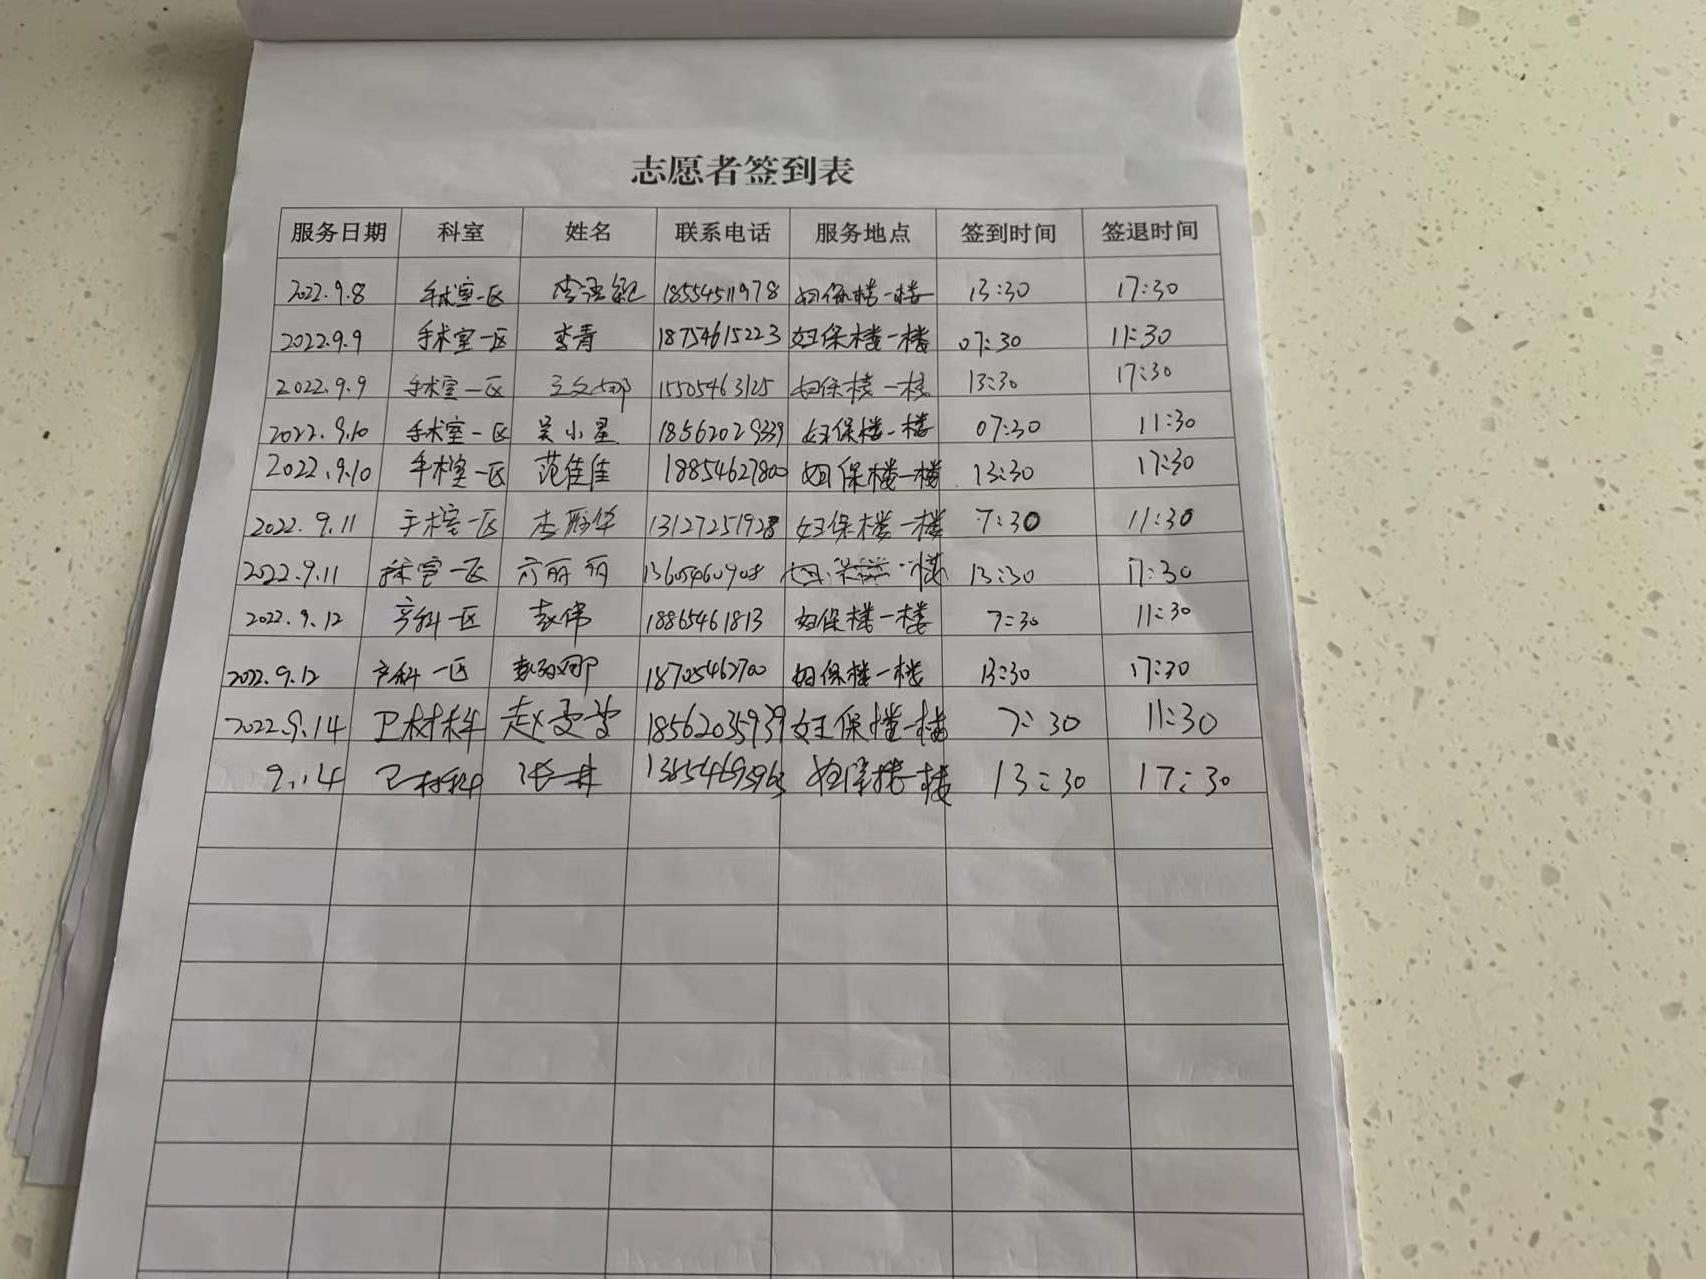 志愿者签到表
服务日期 科室 姓名 联系电话 服务地点 签到时间 签退时间
2022.9.8 手术室一区 18554511978 妇保楼一楼 13:30 17:30
2022.9.9 手术室一区 李青 18754615223 妇保楼一楼 07:30 11:30
2022.9.9 手术室一区 王文娜 15505463125 妇保楼一楼 13:30 17:30
2022.9.10 手术室一区 吴小星 18562029339 妇保楼一楼 07:30 11:30
2022.9.10 手术室一区 范佳佳 18854627800 妇保楼一楼 13:30 17:30
2022.9.11 手术室一区 13127251928 妇保楼一楼 7:30 11:30
2022.9.11 手术室一区 13605460908 妇保楼一楼 13:30 17:30
2022.9.12 产科一区 赵伟 18865461813 妇保楼一楼 7:30 11:30
2022.9.12 产科一区 18705462700 妇保楼一楼 13:30 17:30
2022.9.14 卫材科 18562035939 妇保楼一楼 7:30 11:30
9.14 卫材科 妇保楼一楼 13:30 17:30